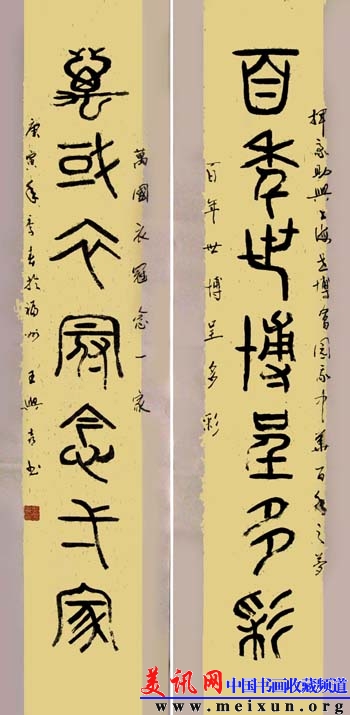 揮毫助興上海世博會圓我中華百年之夢
百秊世博呈多彩
百年世博呈多彩
萬國衣冠念一家
萬或衣冠念弌家
庚寅年季春於福州王興書
美讯网 中国书画收藏频道
www.meixun.org